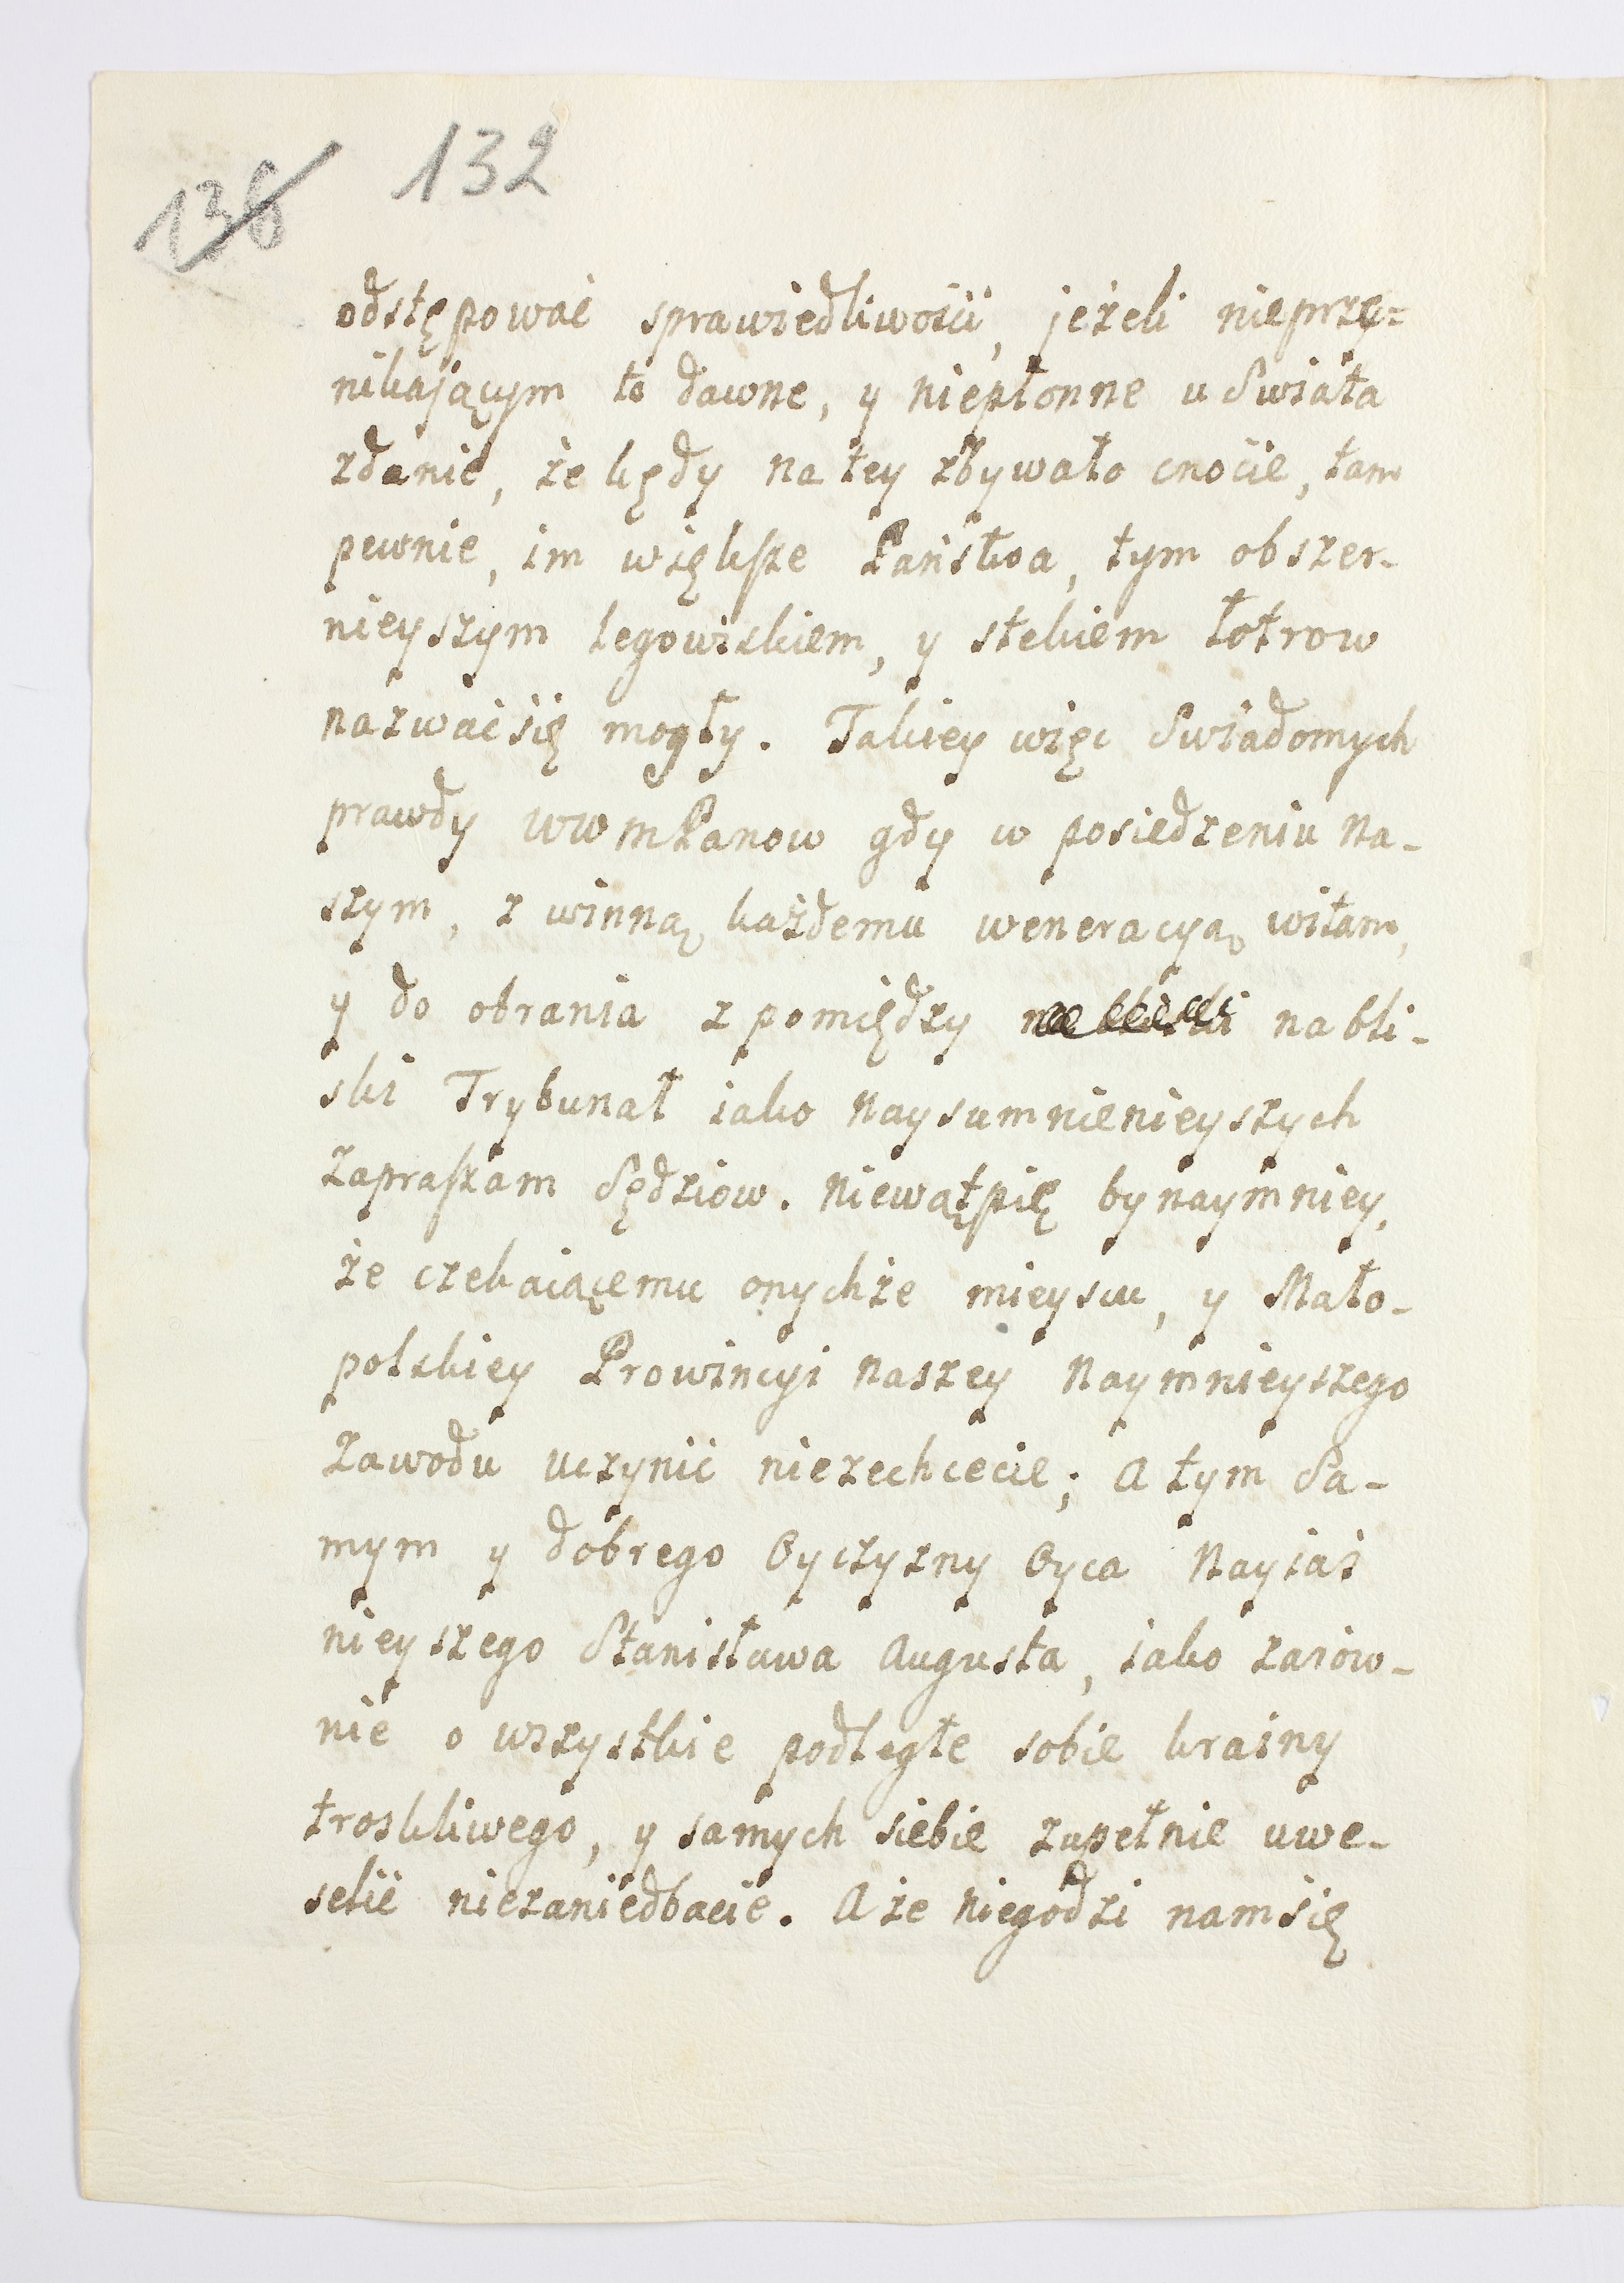 136 132
odstępować sprawiedliwości, jeżeli nieprze-
nikającym to dawne, y niepłonne u Swiata
zdanie, że kędy na tey zbywało cnocie, tam
pewnie, im większe Państwa, tym obszer-
nieyszym legowiskiem, y stekiem łotrow
nazwać się mogły. Takiey więc Swiadomych
prawdy WWMPanow gdy w posiedzeniu na-
szym, z winną każdemu weneracyą witam,
y do obrania z pomiędzy na bli-
ski Trybunał iako naysumnienieyszych
zapraszam Sędziow. Niewątpię bynaymniey,
że czekaiącemu onychże mieyscu, y Mało-
polskiey Prowincyi naszey naymnieyszego
zawodu uczynić niezechcecie; A tym Sa-
mym y dobrego Oyczyzny Oyca Nayiaś
nieyszego Stanisława Augusta, iako zarów-
nie o wszystkie podległe sobie krainy
troskliwego, y samych siebie zupełnie uwe-
selić niezaniedbacie. A że niegodzi nam się